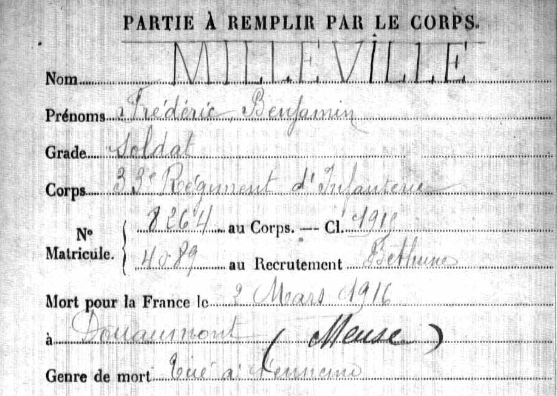 PARTIE À REMPLIR PAR LE CORPS.
Nom MILLEVILLE
Prénoms Frédéric Benjamin
Grade Soldat
Corps 33e Régiment d'Infanterie
N° Matricule. 8264 au Corps. — Cl.
4089 au Recrutement Béthune
Mort pour la France le 2 Mars 1916
à Douaumont (Meuse)
Genre de mort Tué à l'ennemi